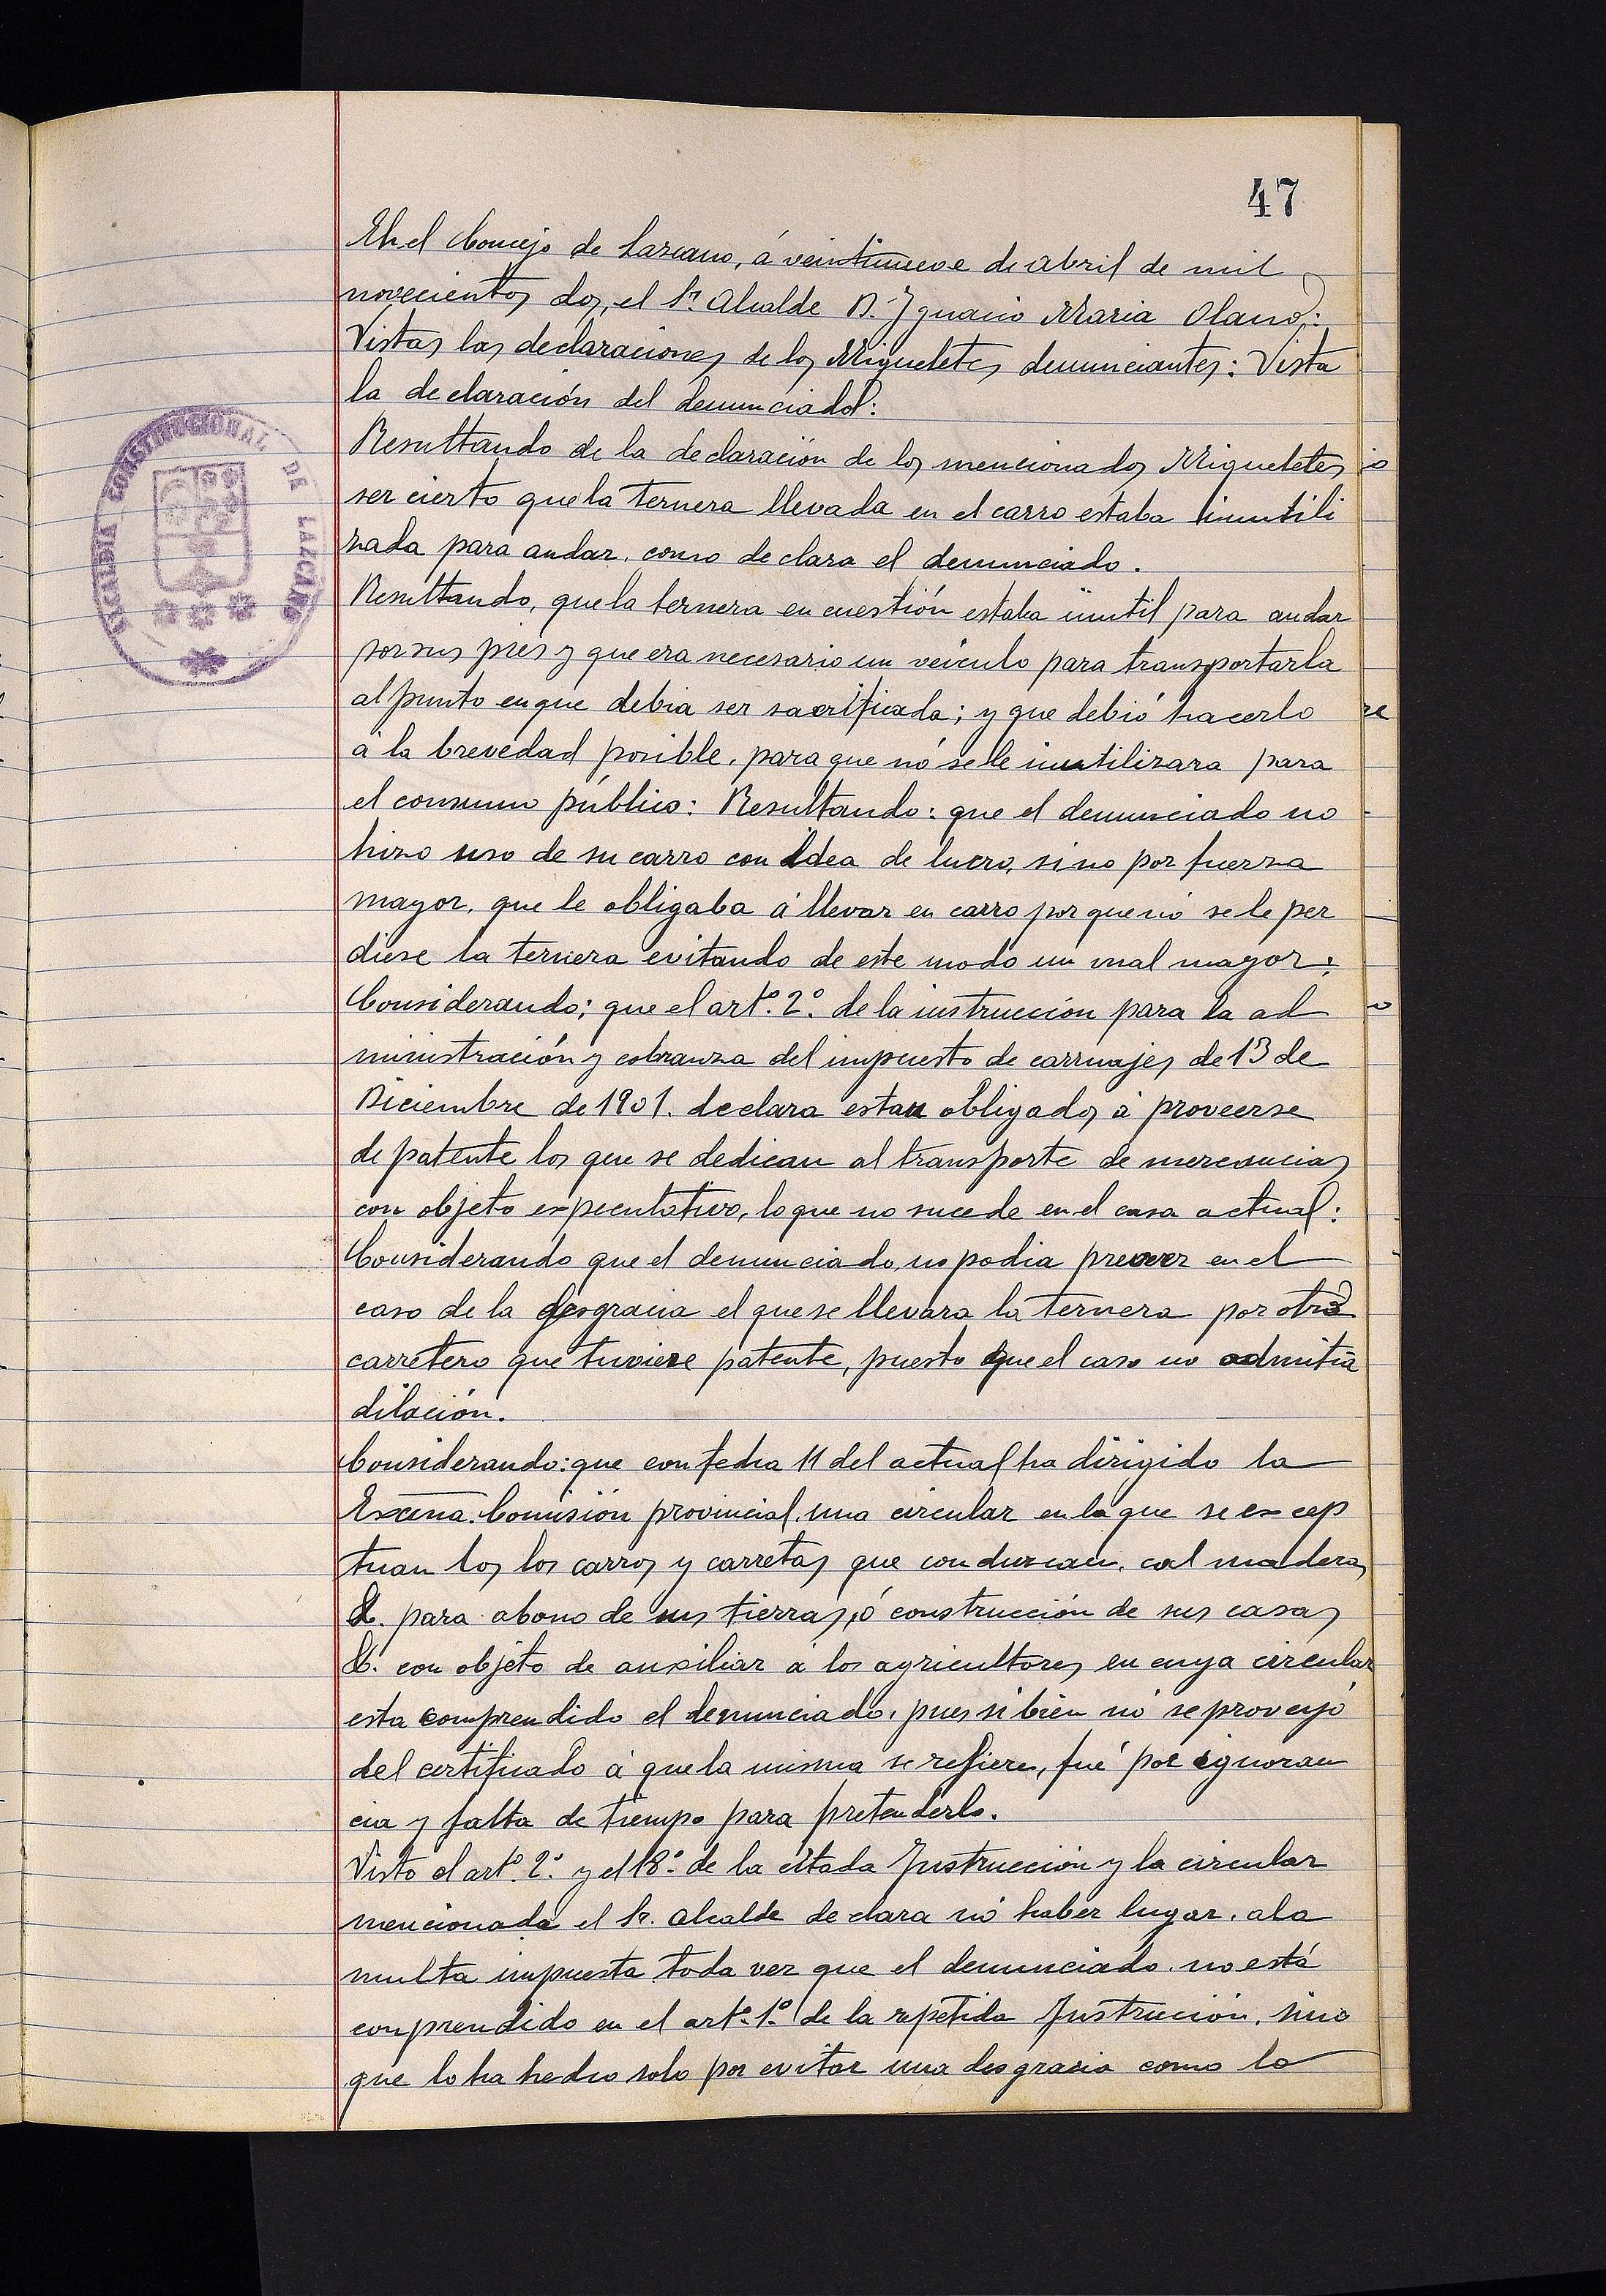 47
En el Concejo de Lazcano, á veintinueve de abril de mil
novecientos dos, el Sr. Alcalde D. Ygnacio Maria Olano:
Vistas las declaraciones de los Migueletes denunciantes: Vista
la declaración del denunciado:
Resultando de la declaración de los mencionados Migueletes
ser cierto que la ternera llevada en el carro estaba inutili
zada para andar, como declara el denunciado.
Resultando, que la ternera en cuestión estaba inutil para andar
por sus piés y que era necesario un veiculo para transportarla
al punto en que debia ser sacrificada; y que debió hacerlo
á la brevedad posible, para que nó se le inutilizara para
el consumo público: Resultando: que el denunciado no
hizo uso de su carro con idea de lucro, sino por fuerza
mayor, que le obligaba á llevar en carro por que nó se le per
diese la ternera evitando de este modo un mal mayor:
Considerando; que el artº. 2º. de la instrucción para la ad
ministración y cobranza del impuesto de carruajes de 13 de
Diciembre de 1901. declara estan obligados á proveerse
de patente los que se dedican al transporte de mercancias
con objeto expeculativo, lo que no sucede en el casa actual:
Considerando que el denunciado, no podia preveer en el
caso de la desgracia el que se llevara la ternera por otro
carretero que tuviese patente, puesto que el caso no admitia
dilación.
Considerando: que con fecha 11 del actual ha dirigido la
Excma. Comisión provincial, una circular en la que se excep
tuan los los carros y carretas que conduzcan, cal maderas
&. para abono de sus tierras, ó construcción de sus casas
&. con objeto de auxiliar á los agricultores en cuya circular
esta comprendido el denunciado, pues si bien nó se proveyó
del certificado á que la misma se refiere, fué por ignoran
cia y falta de tiempo para pretenderlo.
Visto el artº. 2º. y el 18º. de la citada Instrucción y la circular
mencionada el Sr. Alcalde declara nó haber lugar, a la
multa impuesta toda vez que el denunciado, no está
conprendido en el artº. 1º. de la repetida Instrucion, sino
que lo ha hecho solo por evitar una desgracia como lo
ALCALDIA CONSTITUCIONAL DE LAZCANO